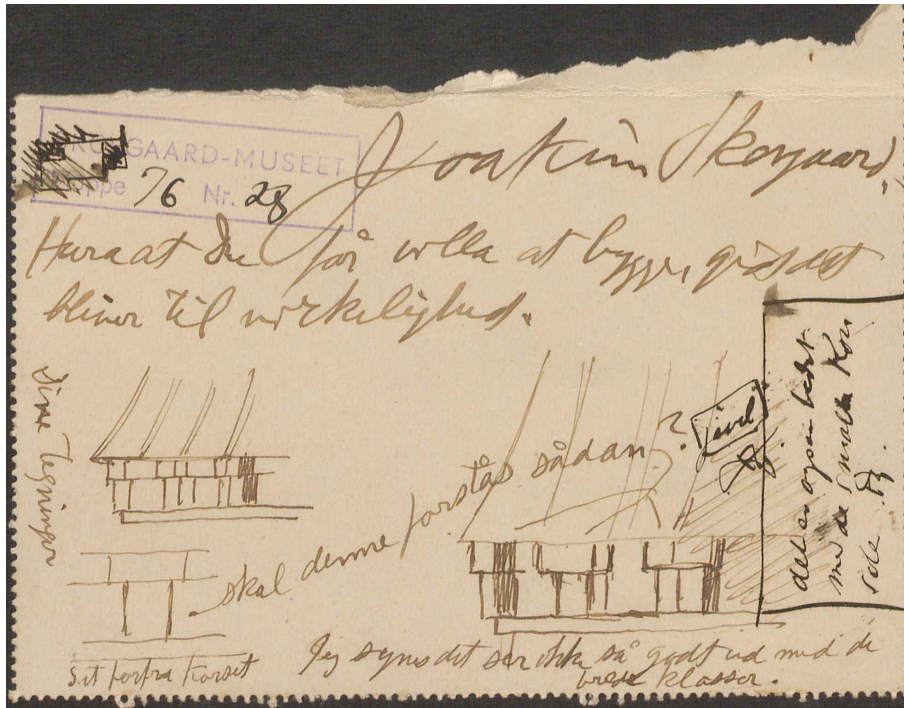 SKOVGAARD-MUSEET
Mappe 76 Nr. 28
Joakim Skovgaard,
Hura at Du får villa at bygge, gid det
bliver til virkelighed.
Dine Tegninger
skal denne forstås sådan?
jövel
det er også bedst
med de smalle Kon
sole
Set forfra Korset
Jeg synes det ser ikke så godt ud med de
brede klosser.